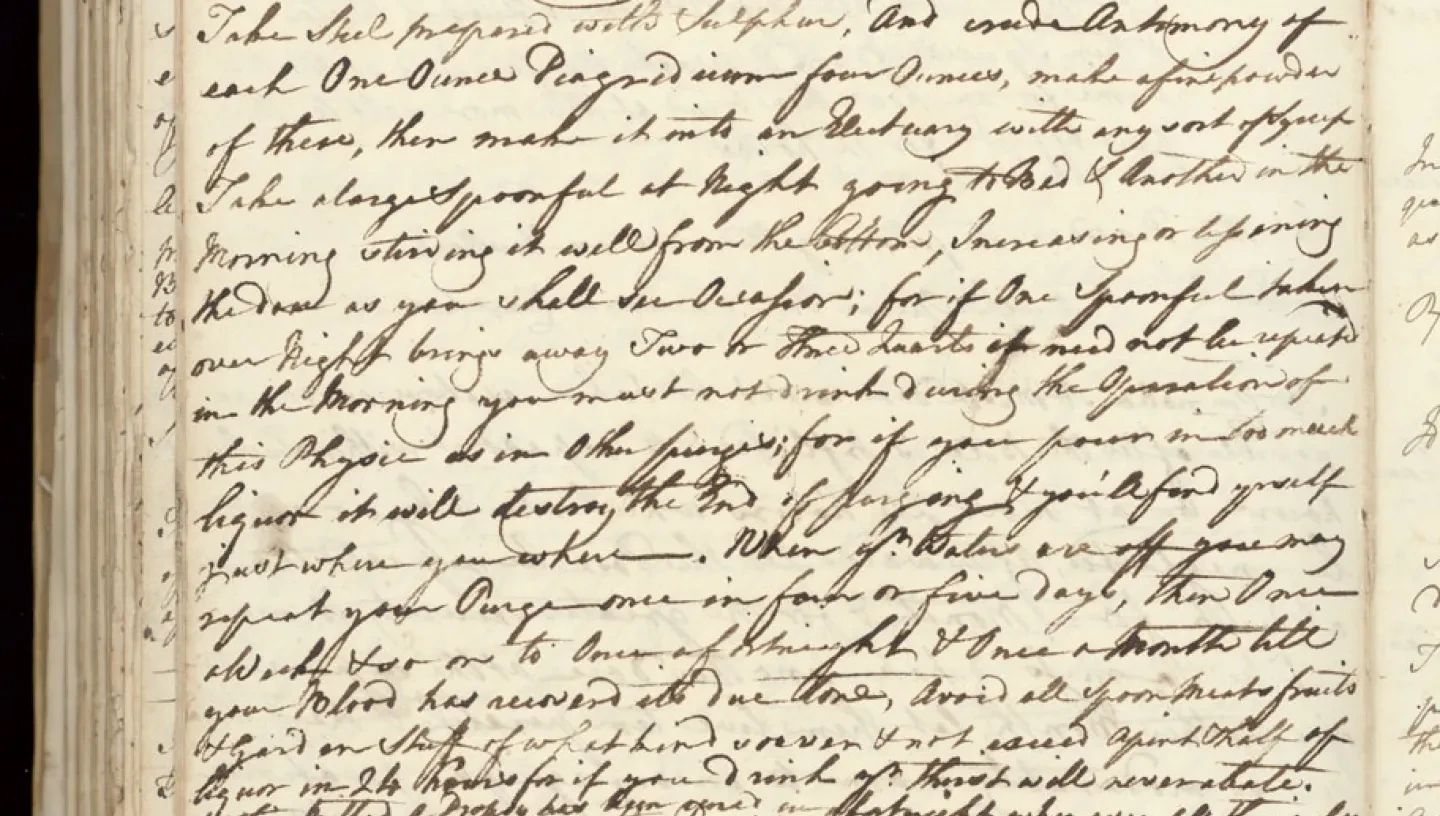 Take Steel prepared with Sulphur, And crude Antimony of
each One Ounce Diagridium four Ounces, make a fine powder
of these, then make it into an Electuary with any sort of Syrup
Take a large Spoonful at Night going to Bed & Another in the
Morning stirring it well from the bottom, Increasing or lessening
the dose as you shall see Occasion; for if One Spoonful taken
over Night brings away Two or three Quarts it need not be repeated
in the Morning you must not drink during the Operation of
this Physic as in Other purges; for if you pour in too much
liquor it will destroy the End of purging & you'll find yrself
just where you where. When yr. Waters are off you may
repeat your Purge once in four or five days, then Once
a Week & so on to Once a fortnight & Once a Month till
your Blood has recovered its due tone, Avoid all Spoon Meats fruits
& Garden Stuff of what kind soever & not exceed a pint & half of
liquor in 24 hours for if you drink yr. thirst will never abate.
Dropsy has been cured in a fortnight